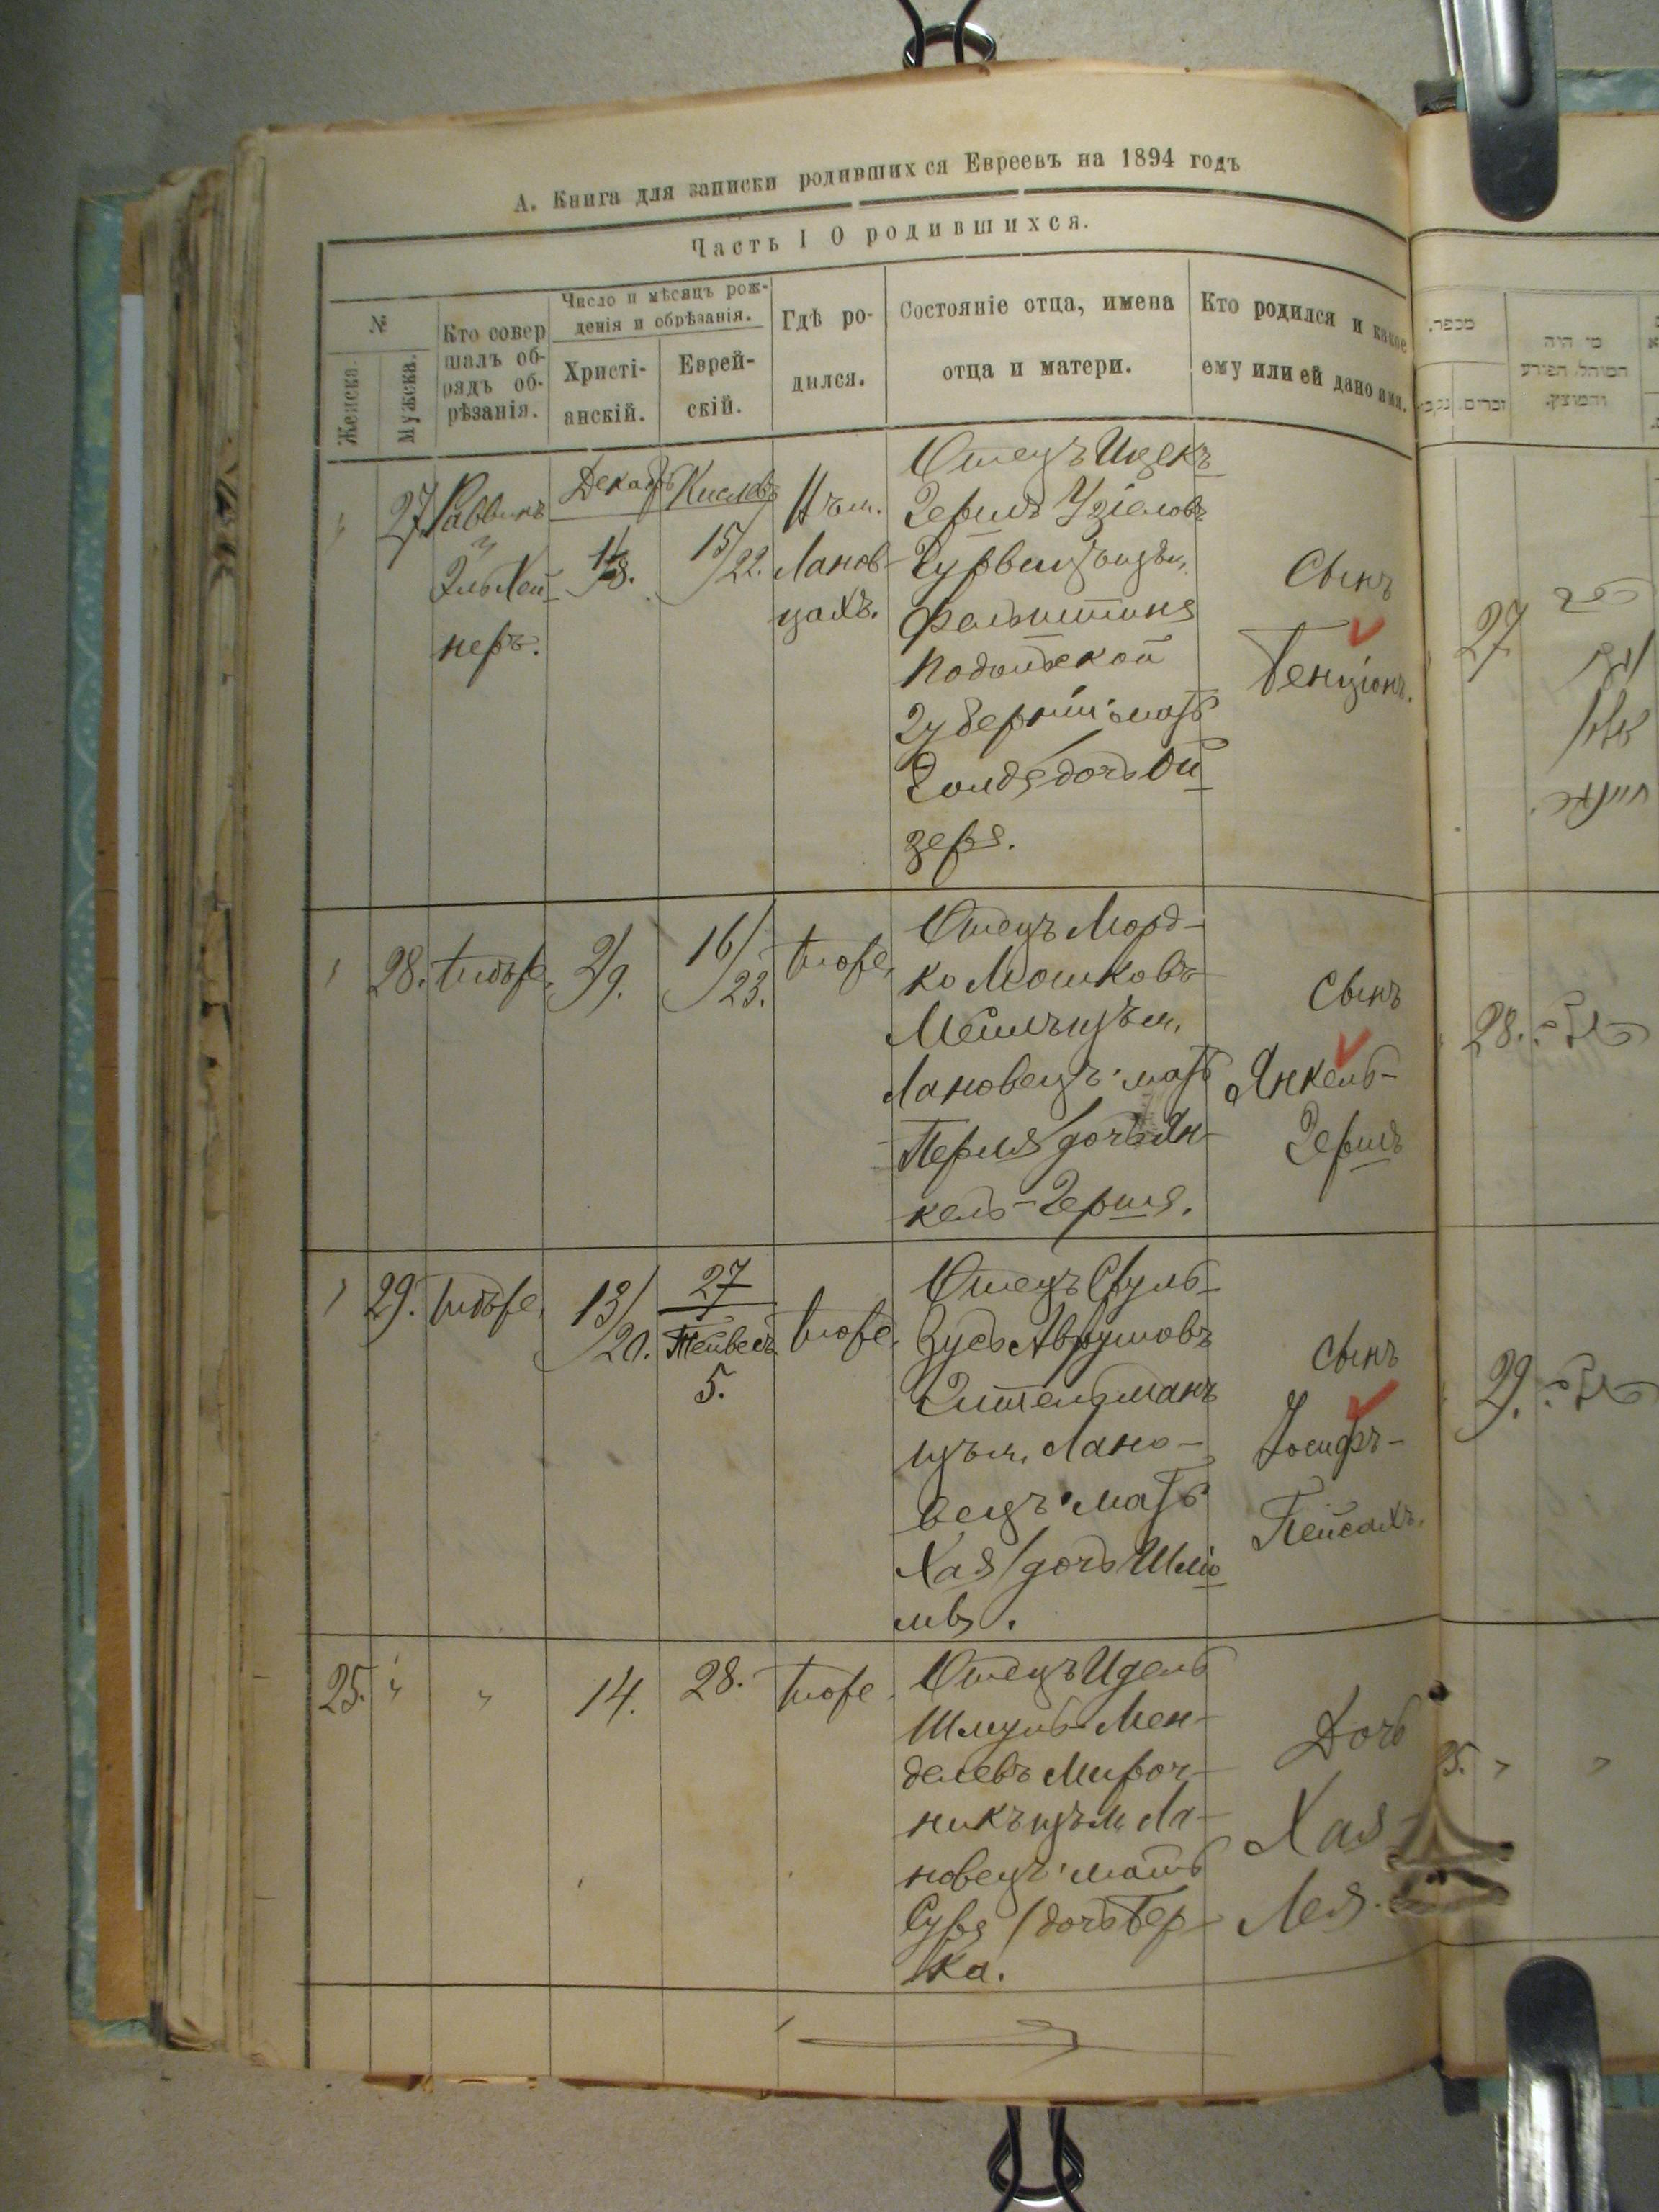 А. Книга для записки родившихся Евреевъ на 1894 годъ
Часть I О родившихся.
№
Женска.
Мужска.
Кто совер
шалъ об-
рядъ об-
рѣзанія.
Число и мѣсяцъ рож-
денія и обрѣзанія.
Христі-
анскій.
Еврей-
скій.
Гдѣ ро-
дился.
Состояніе отца, имена
отца и матери.
Кто родился и какое
ему или ей дано имя.
27
Раввинъ
Декабр
Кислевъ
1/8.
15/22.
Въ м.
Ланов-
цахъ.
Отецъ Ицекъ
Гершъ
Фельштина
Подольской
губерніи мать
Голда дочь Ой
зера.
Сынъ
Бенціонъ.
28.
тоже
2/9.
16/23.
тоже
Отецъ Морд-
ко Мошковъ
Лановецъ мать
Перля дочь Ян-
кель-Герша.
Сынъ
Янкель-
Гершъ
29.
тоже
13/20.
27
Тейвесъ
5.
тоже
Отецъ Сруль-
Зусь Аврумовъ
Гительманъ
изъ м. Лано-
вецъ мать
Хая дочь Шліо
мы.
Сынъ
Іосифъ-
Пейсахъ.
25.
14.
28.
тоже
Отецъ Идель
Шмуль Мен-
делевъ Мироч-
никъ изъ м. Ла-
новецъ мать
Сура дочь Бер-
ка.
Дочь
Хая
Лея.
מספר.
זכרים.
מי היה
המוהל הפורע
והמוצץ.
27
28.
29.
25.